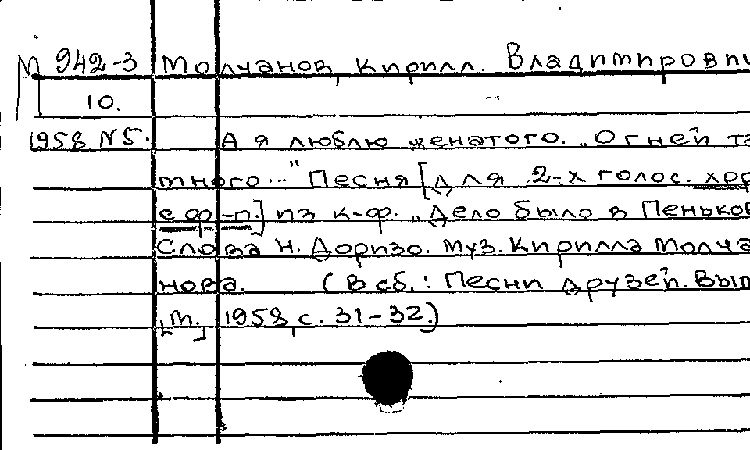 М 942-3 Молчанов, Кирилл. Владимирови
10.
1958 N5. А я люблю женатого. „Огней та
много..." Песня [для 2-х голос. хор
с ф.-п.] из к-ф. „Дело было в Пеньков
Слова Н. Доризо. Муз. Кирилла Молча
нова. (В сб.: Песни друзей. Вып
[М.], 1958, с. 31-32.)